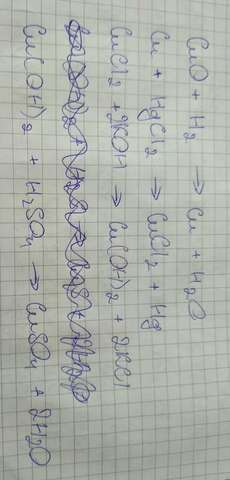 CuO + H2 → Cu + H2O
Cu + HgCl2 → CuCl2 + Hg
CuCl2 + 2KOH → Cu(OH)2 + 2KCl
Cu(OH)2 + H2SO4 → CuSO4 + 2H2O